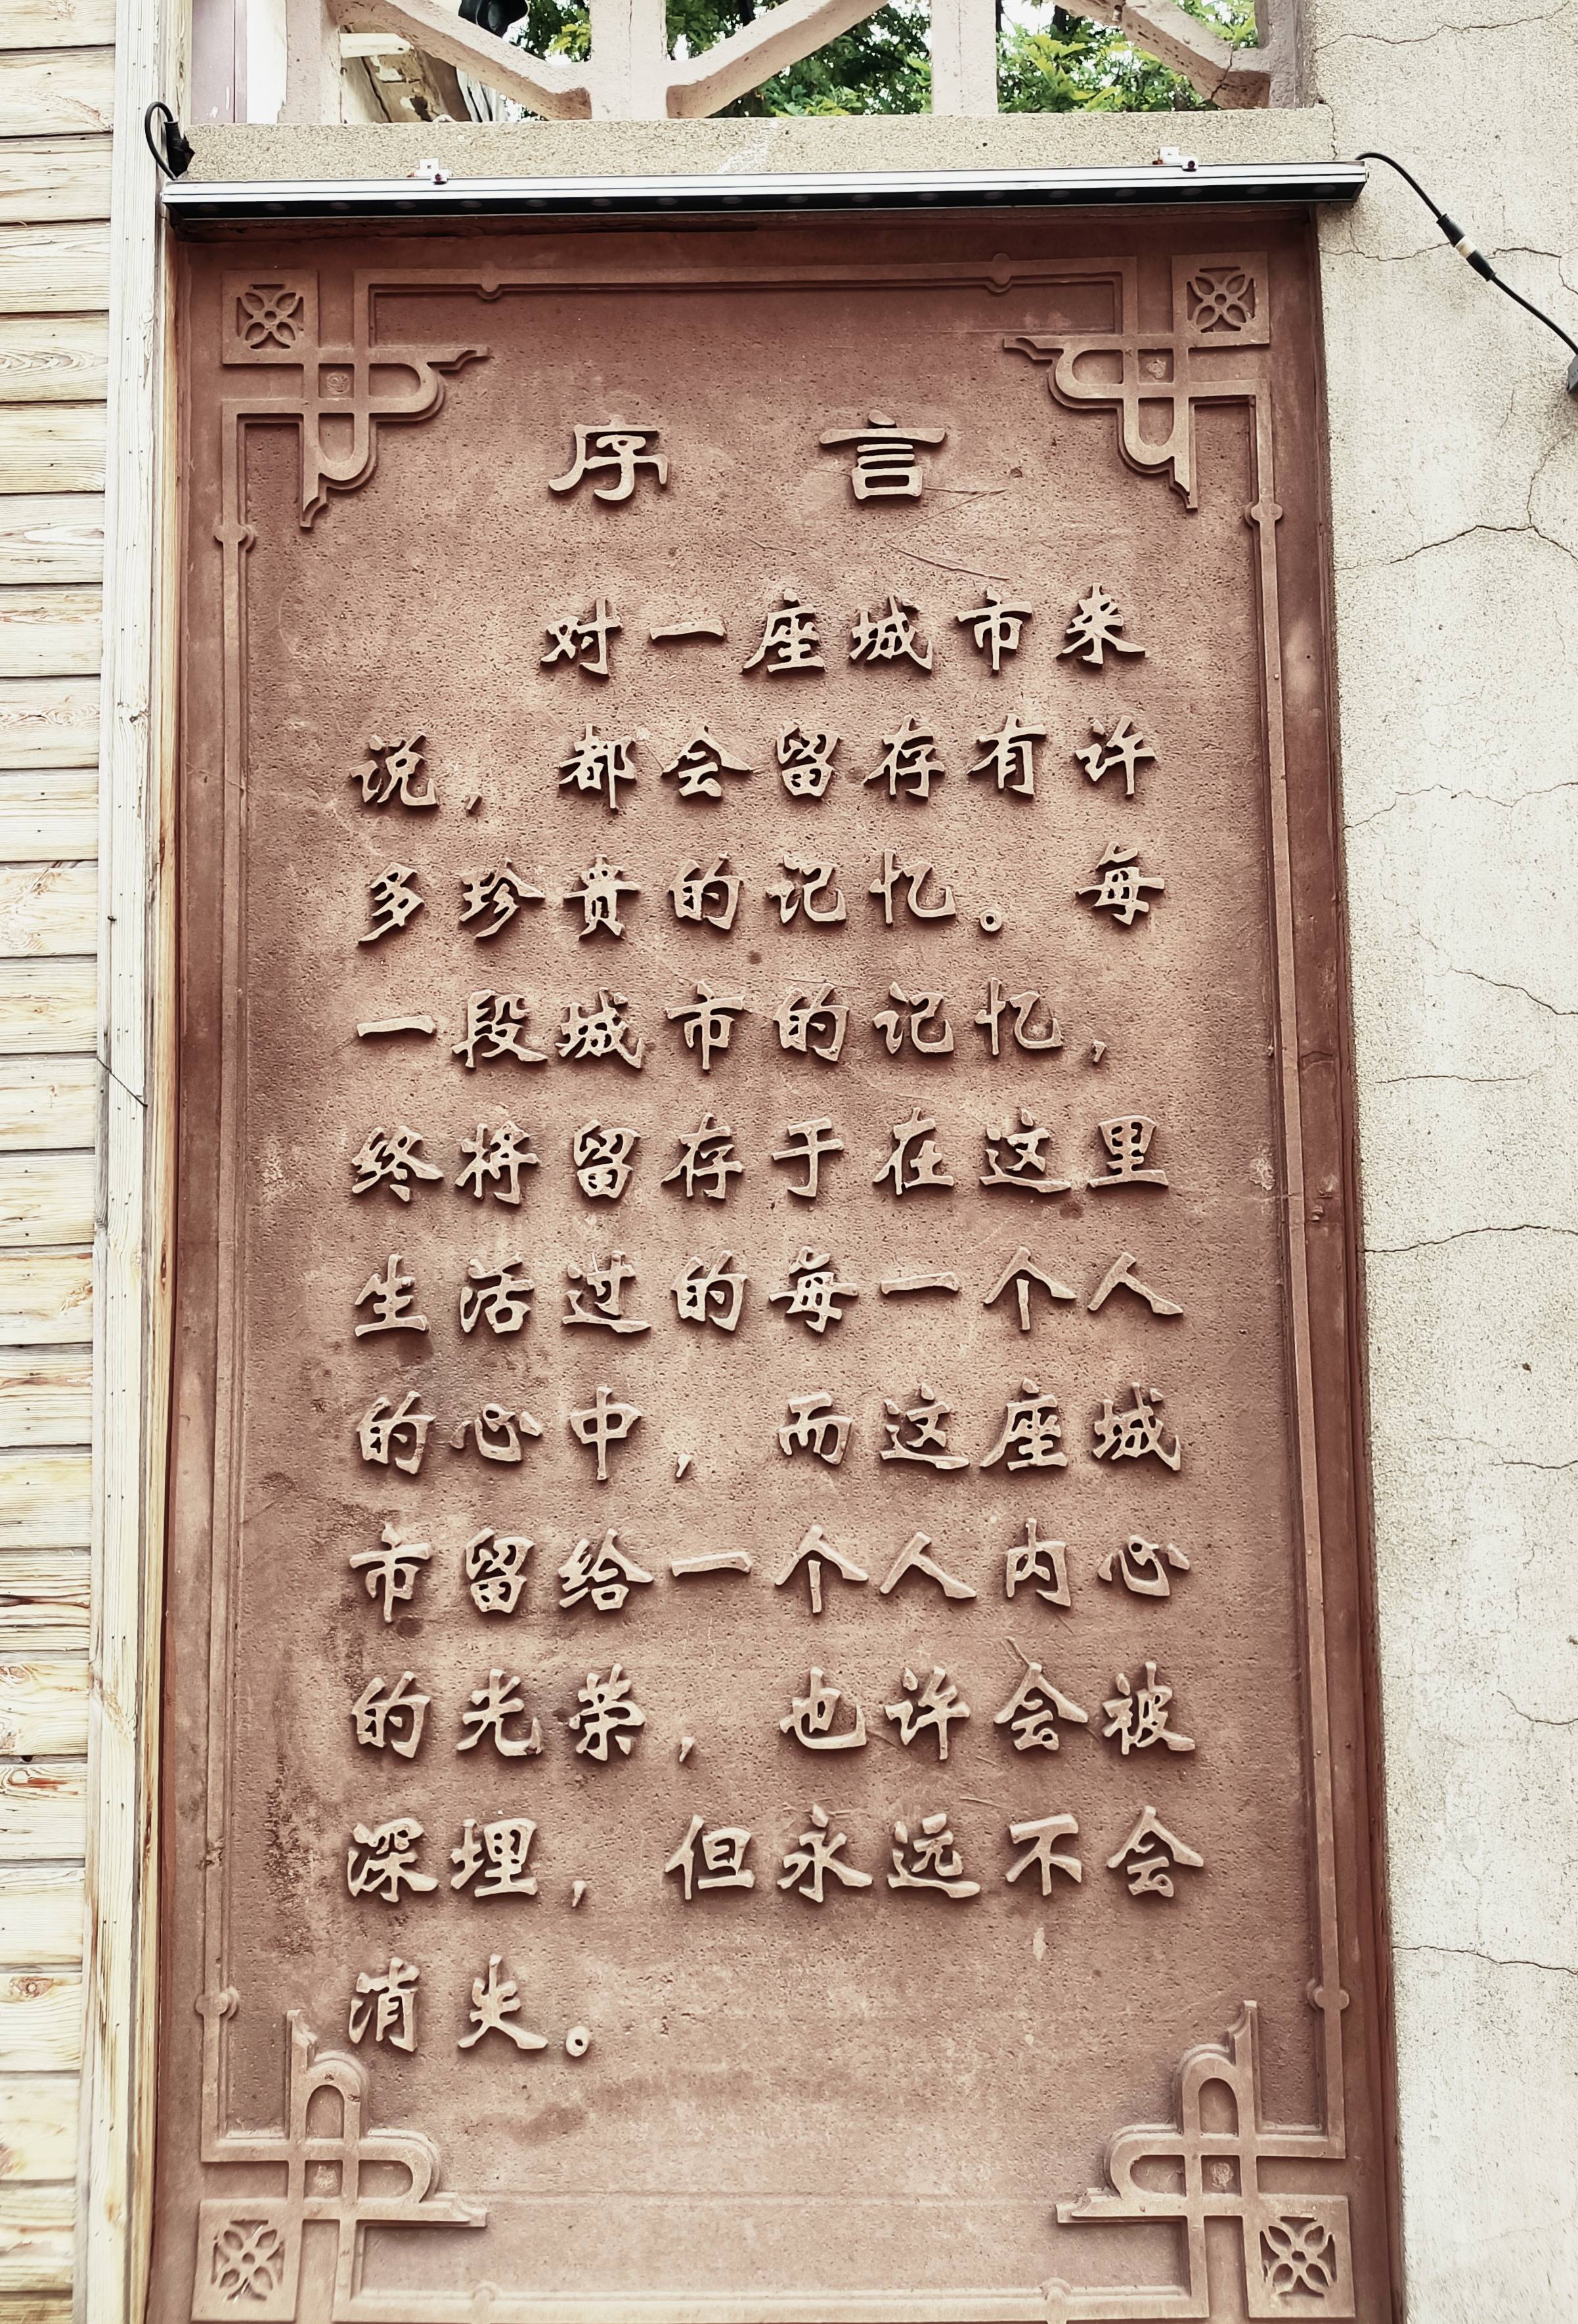 序言
对一座城市来
说，都会留存有许
多珍贵的记忆。每
一段城市的记忆，
终将留存于在这里
生活过的每一个人
的心中，而这座城
市留给一个人内心
的光荣，也许会被
深埋，但永远不会
消失。